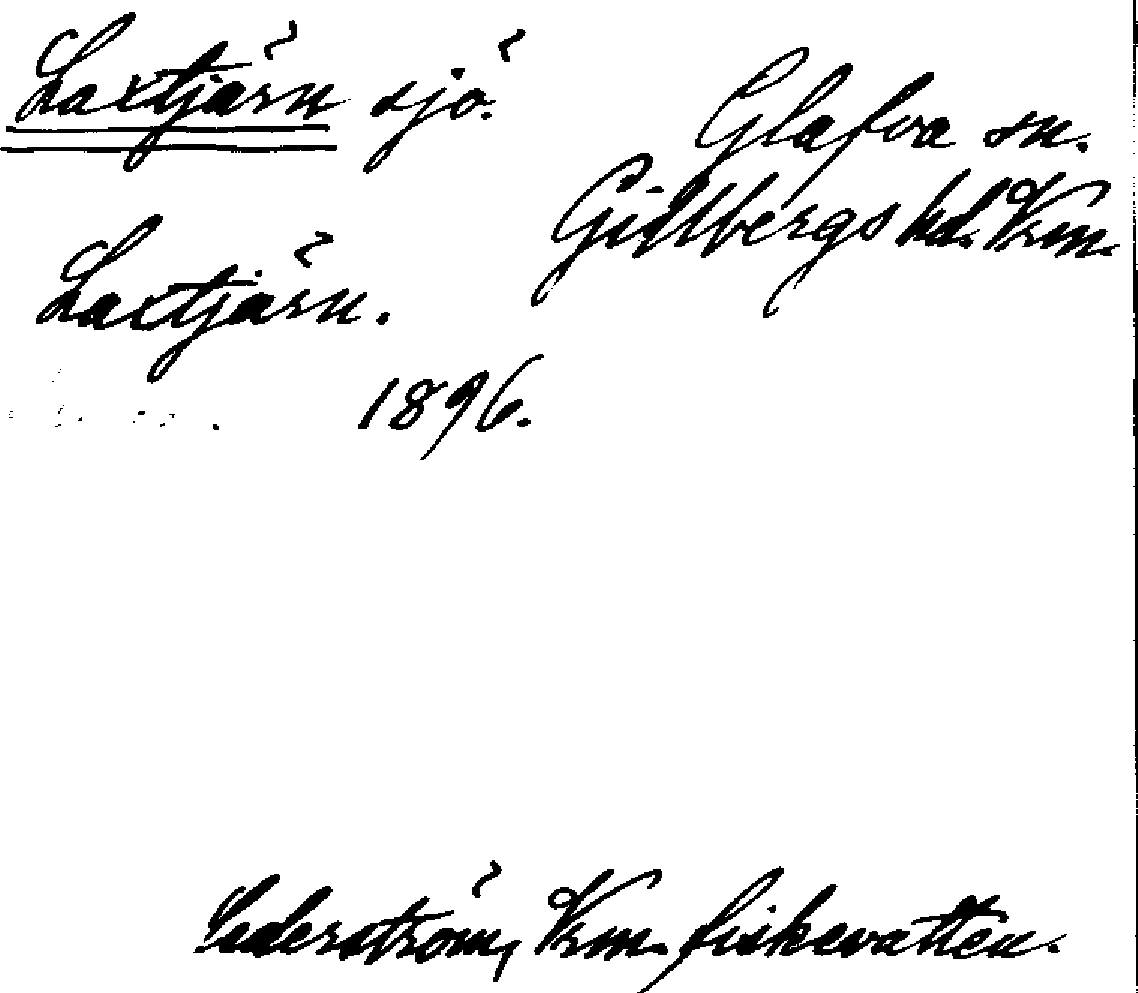 Laxtjärn sjö.
Glafva sn.
Gillbergs hd. Vrm.
Laxtjärn.
1896.
Cederström, Vrm. fiskevatten.